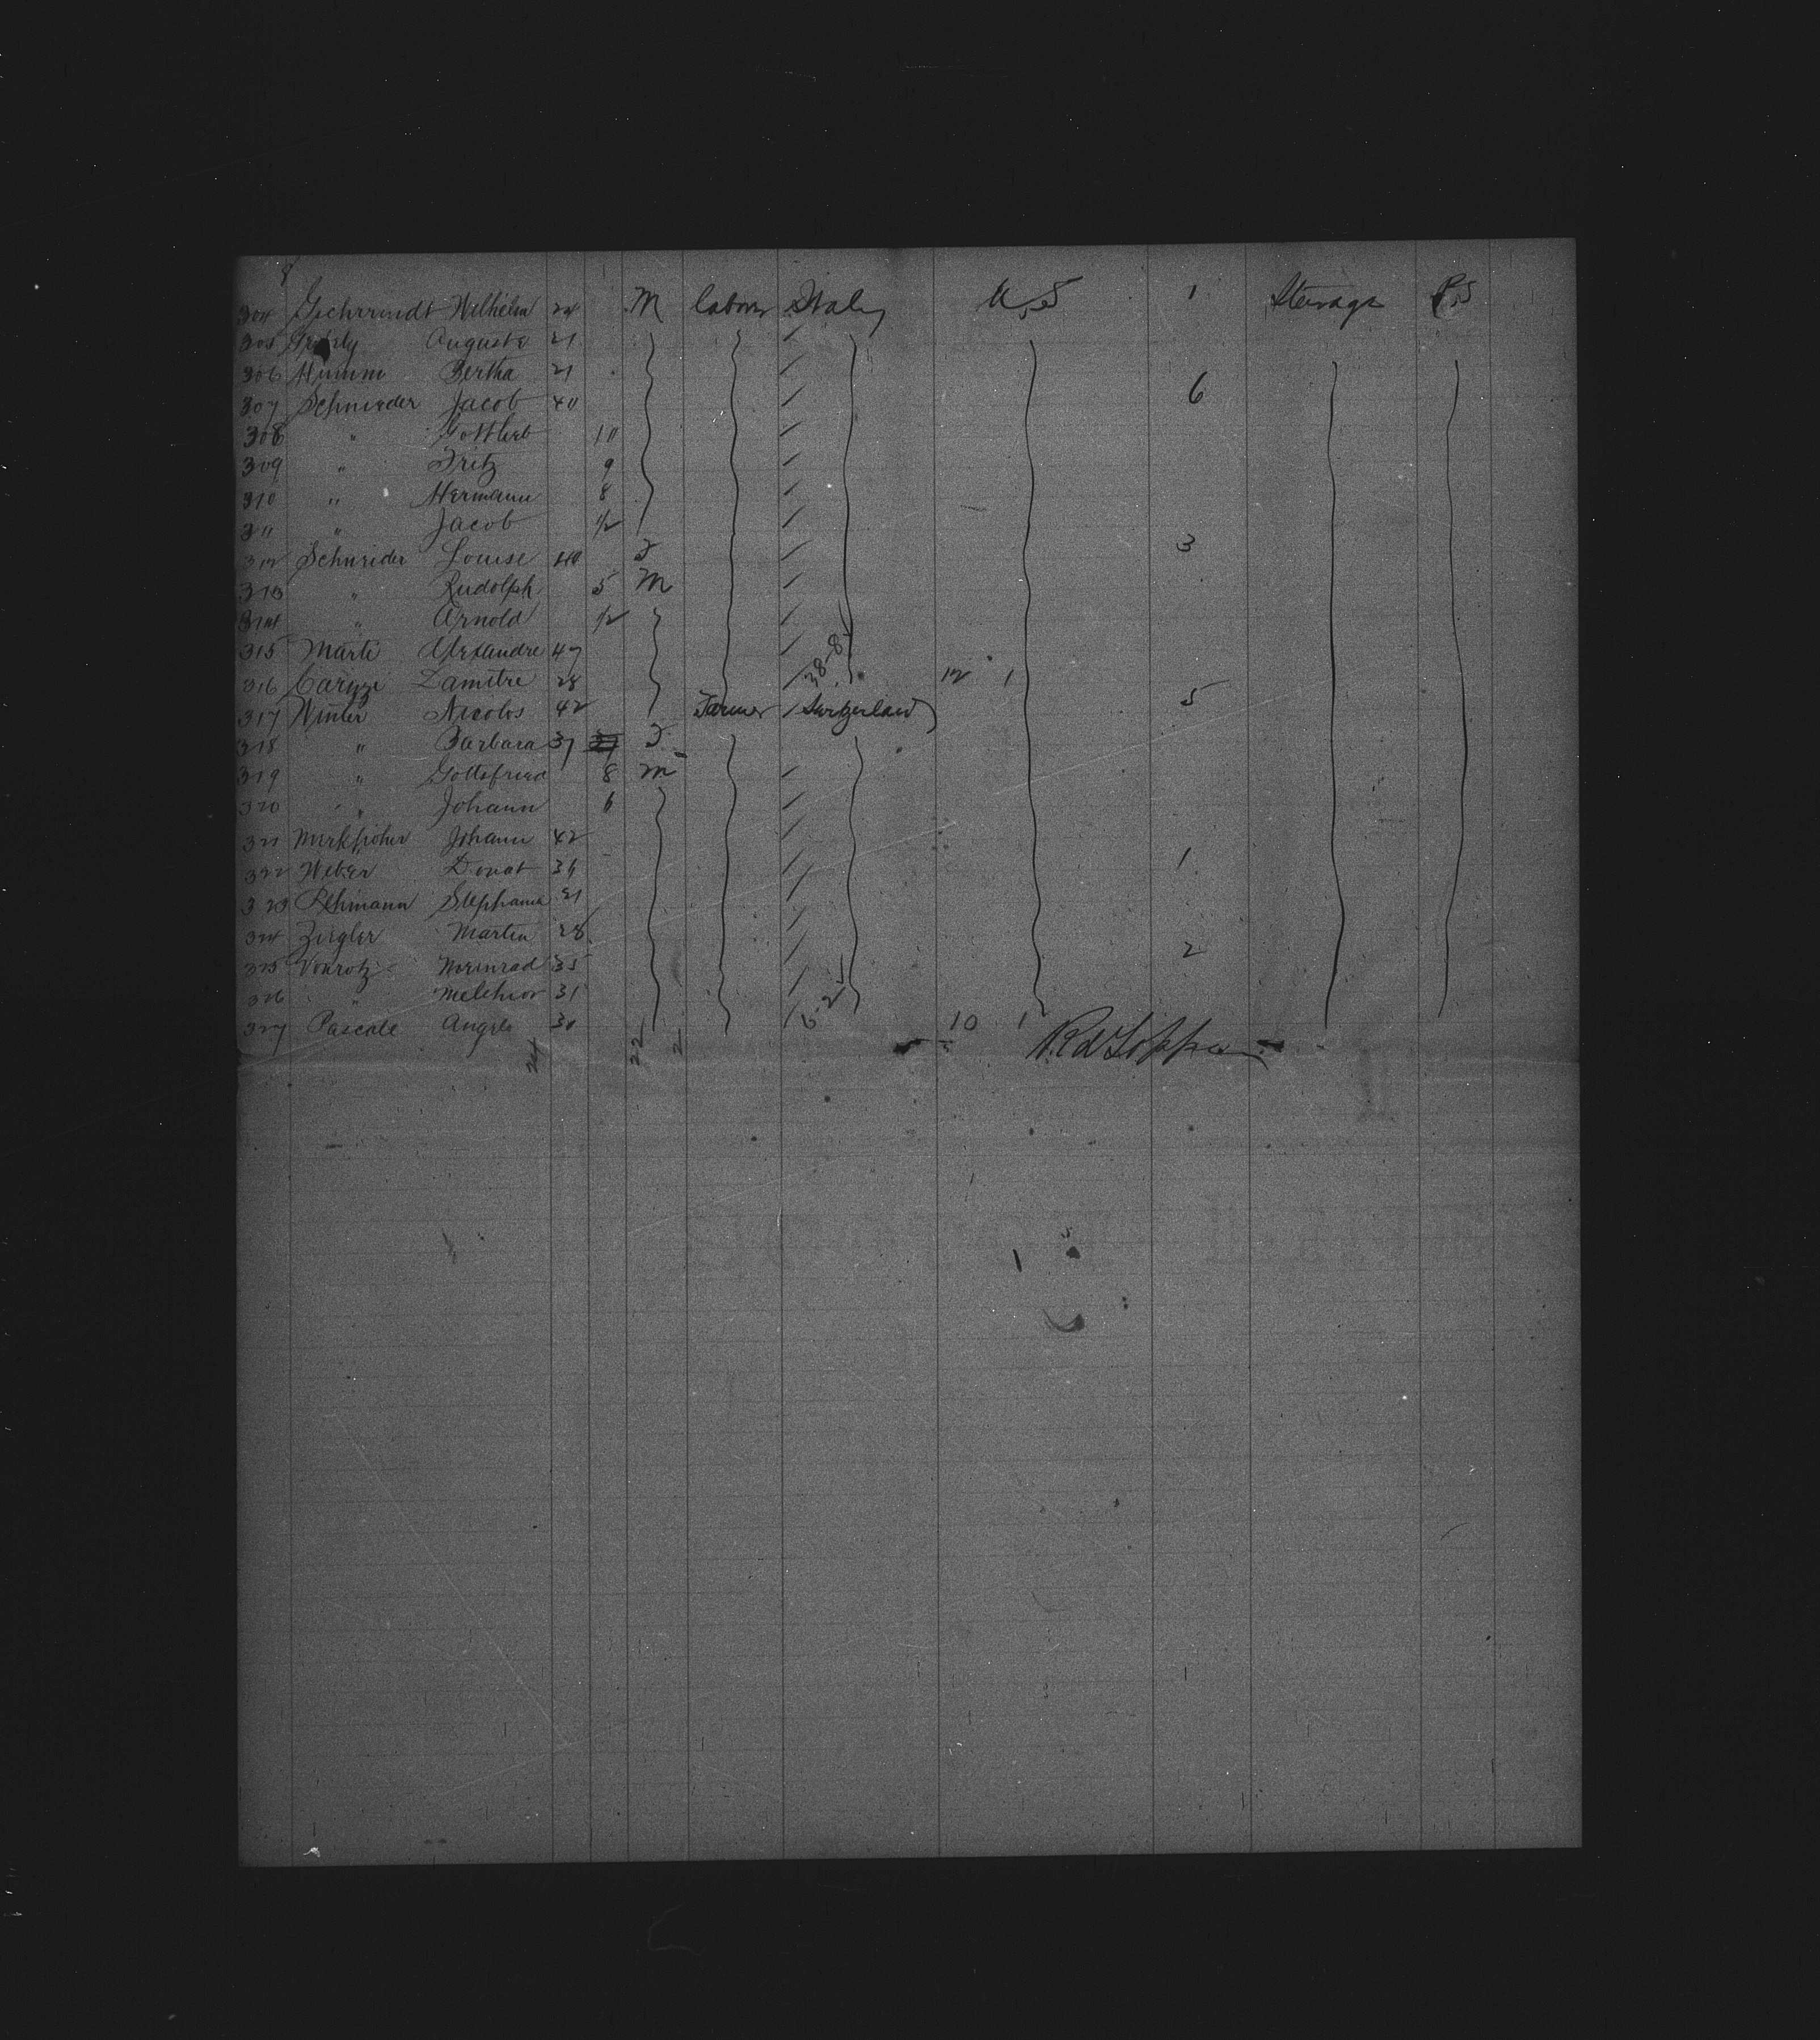 8
304 Gschwindt Wilhelm 24 M labour Italy U.S 1 Steerage P.S
305 Auguste 21
306 Humm Bertha 21
307 Schneider Jacob 40 6
308 " Gottlieb 10
309 " Fritz 9
310 " Hermann 8
311 " Jacob 1/2
312 Schneider Louise 40 F 3
313 " Rudolph 5 M
314 " Arnold 1/2
315 Marti Alexandre 47
316 28 38-8 12 1
317 Winter Nicolos 42 Farmer Switzerland 5
318 " Barbara 37 F
319 " Gottefried 8 M
320 " Johann 6
321 Johann 42
322 Weber Donat 36 1
323 Stephanie 21
324 Ziegler Martin 28
325 Vonrotz Meinrad 35 2
326 " Melchior 31
327 Pascale Angelo 30 6-2 10 1
24 22 2